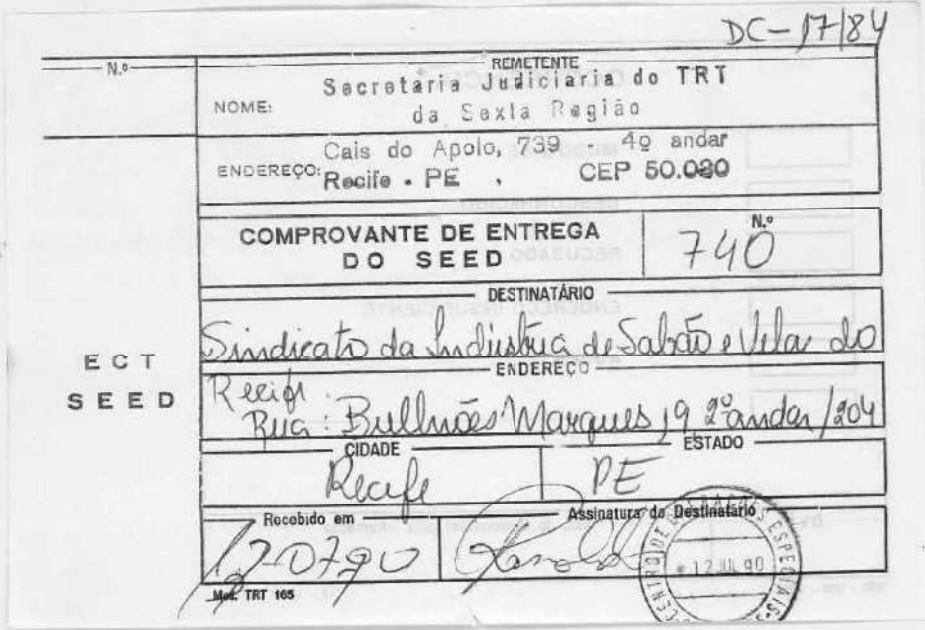 DC-17/84
N.º
REMETENTE
NOME: Secretaria Judiciaria do TRT
da Sexta Região
ENDEREÇO: Cais do Apolo, 739 - 4º andar
Recife - PE , CEP 50.030
COMPROVANTE DE ENTREGA
DO SEED
N.º
740
DESTINATÁRIO
Sindicato da Indústria de Sabão e Velas do
ENDEREÇO
Recife.
Rua: Bulhões Marques, 19 2º andar/204
CIDADE
Recife
ESTADO
PE
ECT
SEED
Recebido em
120790
Assinatura do Destinatário
CENTRO DE SERVIÇOS ESPECIAIS
12 JUL 90
Mod. TRT 165